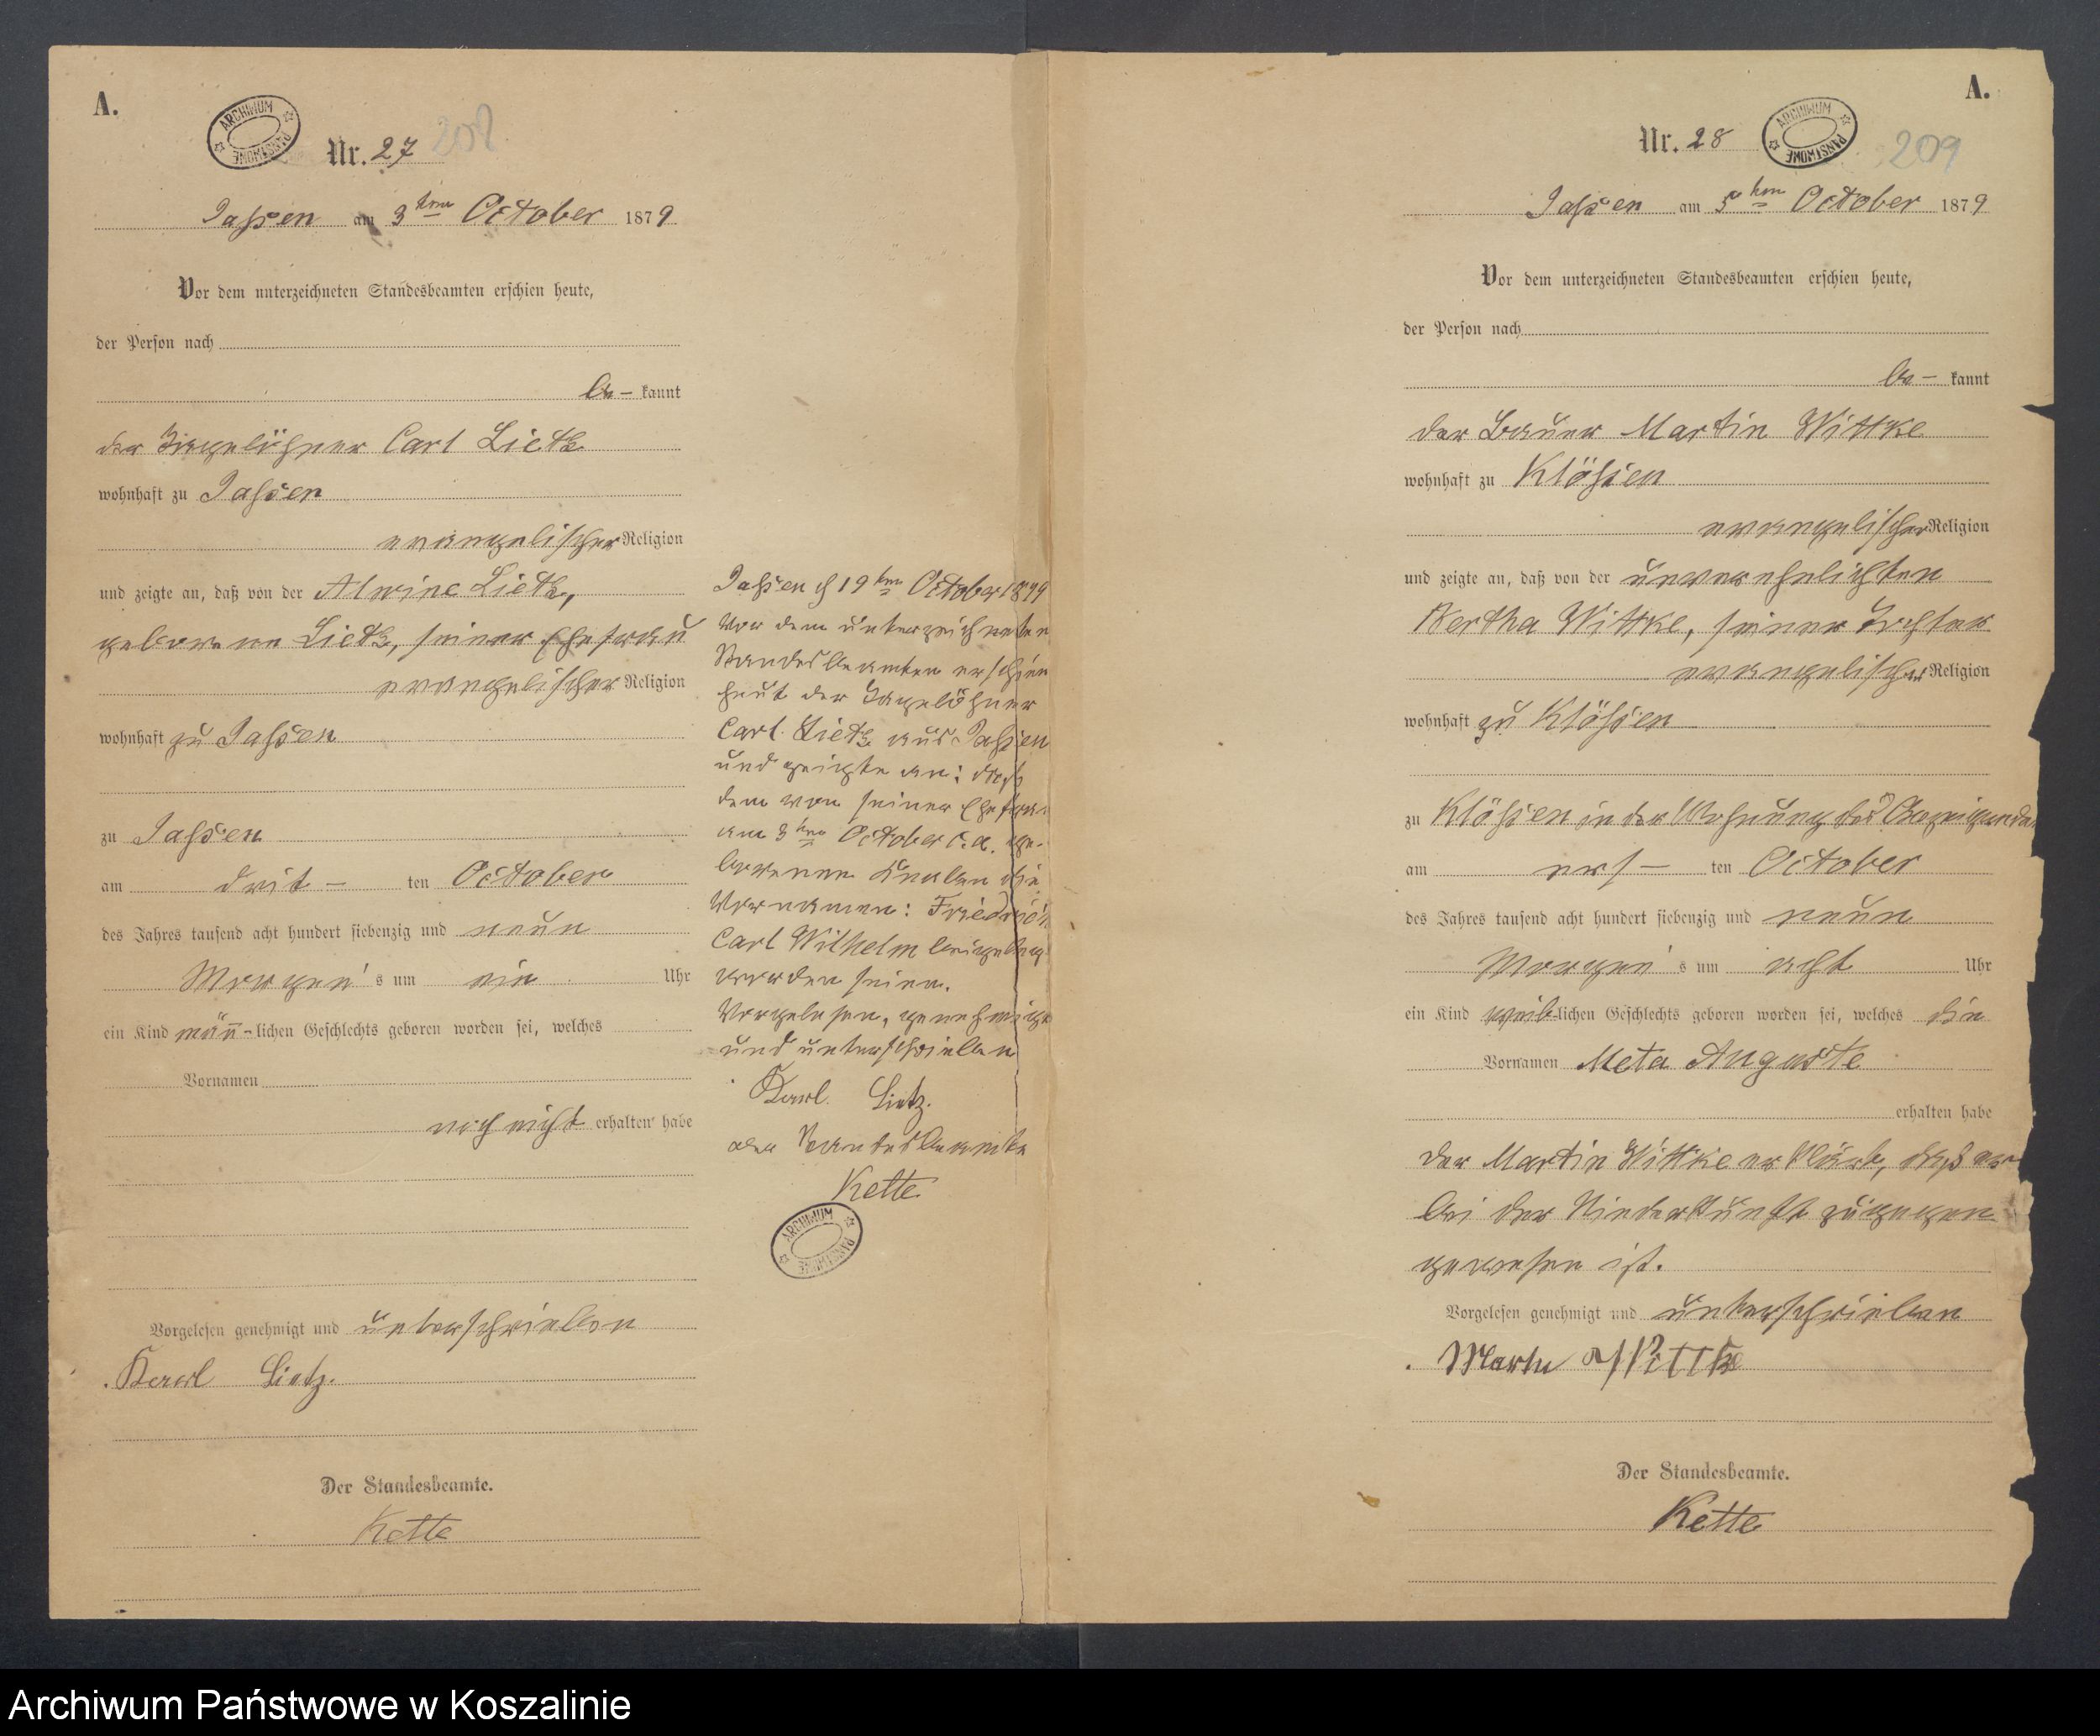 A.
ARCHIWUM PAŃSTWOWE
Nr. 27 208
Jassen am 3ten October 1879
Vor dem unterzeichneten Standesbeamten erschien heute,
der Person nach
be- kannt
der Tagelöhner Carl Lietz
wohnhaft zu Jassen
evangelischer Religion
und zeigte an, daß von der Alwine Lietz,
geborene Lietz, seiner Ehefrau
evangelischer Religion
wohnhaft zu Jassen
zu Jassen
am drit- ten October
des Jahres tausend acht hundert siebenzig und neun
Morgen's um ein Uhr
ein Kind männ-lichen Geschlechts geboren worden sei, welches
Vornamen
noch nicht erhalten habe
Vorgelesen genehmigt und unterschrieben
Karl Lietz.
Der Standesbeamte.
Kette
Jassen d 19ten October 1879
Vor dem unterzeichneten
Standesbeamten erschien
heut der Tagelöhner
Carl Lietz aus Jassen
und zeigte an: daß
dem von seiner Ehefrau
am 3ten October c.a. ge-
borenen Knaben die
Vornamen: Friedrich
Carl Wilhelm beigelegt
worden seien.
Vorgelesen, genehmigt
und unterschrieben
Karl Lietz.
der Standesbeamte
Kette
ARCHIWUM PAŃSTWOWE
A.
Nr. 28 209
ARCHIWUM PAŃSTWOWE
Jassen am 5ten October 1879
Vor dem unterzeichneten Standesbeamten erschien heute,
der Person nach
be- kannt
der Bauer Martin Wittke
wohnhaft zu Klößen
evangelischer Religion
und zeigte an, daß von der unverehelichten
Bertha Wittke, seiner Tochter
evangelischer Religion
wohnhaft zu Klößen
zu Klößen in der Wohnung des Anzeigenden
am ers- ten October
des Jahres tausend acht hundert siebenzig und neun
Morgen's um acht Uhr
ein Kind weib-lichen Geschlechts geboren worden sei, welches die
Vornamen Meta Auguste
erhalten habe
der Martin Wittke erklärt, daß er
bei der Niederkunft zugegen
gewesen ist.
Vorgelesen genehmigt und unterschrieben
Martin Wittke
Der Standesbeamte.
Kette
Archiwum Państwowe w Koszalinie